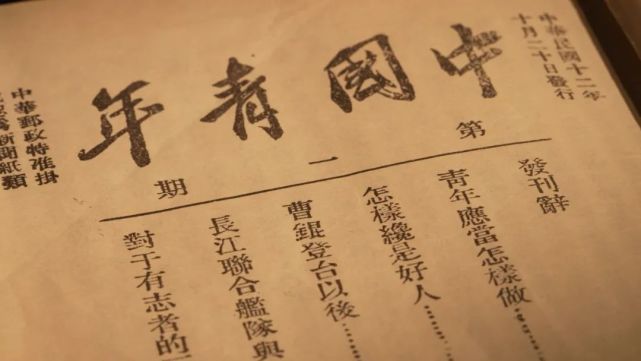 中華民國十二年
十月二十日發行
中國青年
第一期
發刊辭
青年應當怎樣做……
怎樣纔是好人……
曹錕登台以後……
長江聯合艦隊與
對于有志者的
中華郵政特准掛
認為新聞紙類